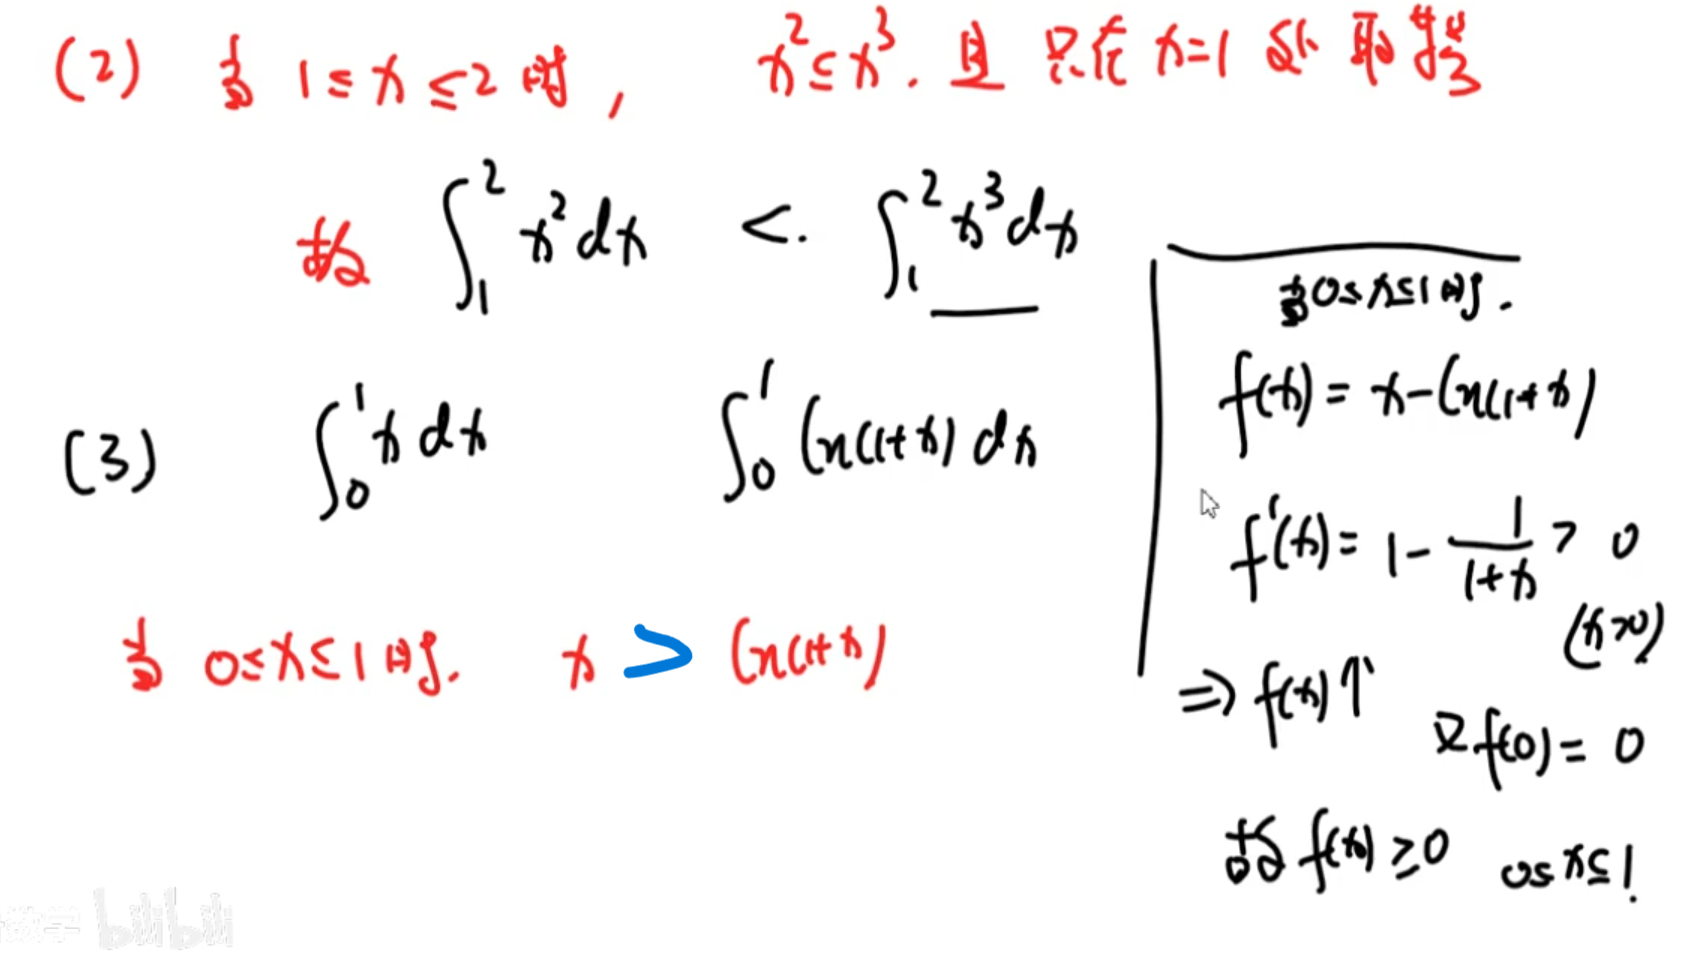 (2) 当 1≤x≤2时, x²≤x³. 且 只在 x=1 处 取等号
故 ∫₁² x²dx <. ∫₁² x³dx
(3) ∫₀¹ x dx ∫₀¹ ln(1+x) dx
当 0≤x≤1时. x > ln(1+x)
当0≤x≤1时.
f(x) = x-ln(1+x)
f'(x) = 1 - 1/(1+x) > 0
(x>0)
⇒ f(x)↑
又f(0) = 0
故 f(x) ≥0 0≤x≤1
数学 bilibili